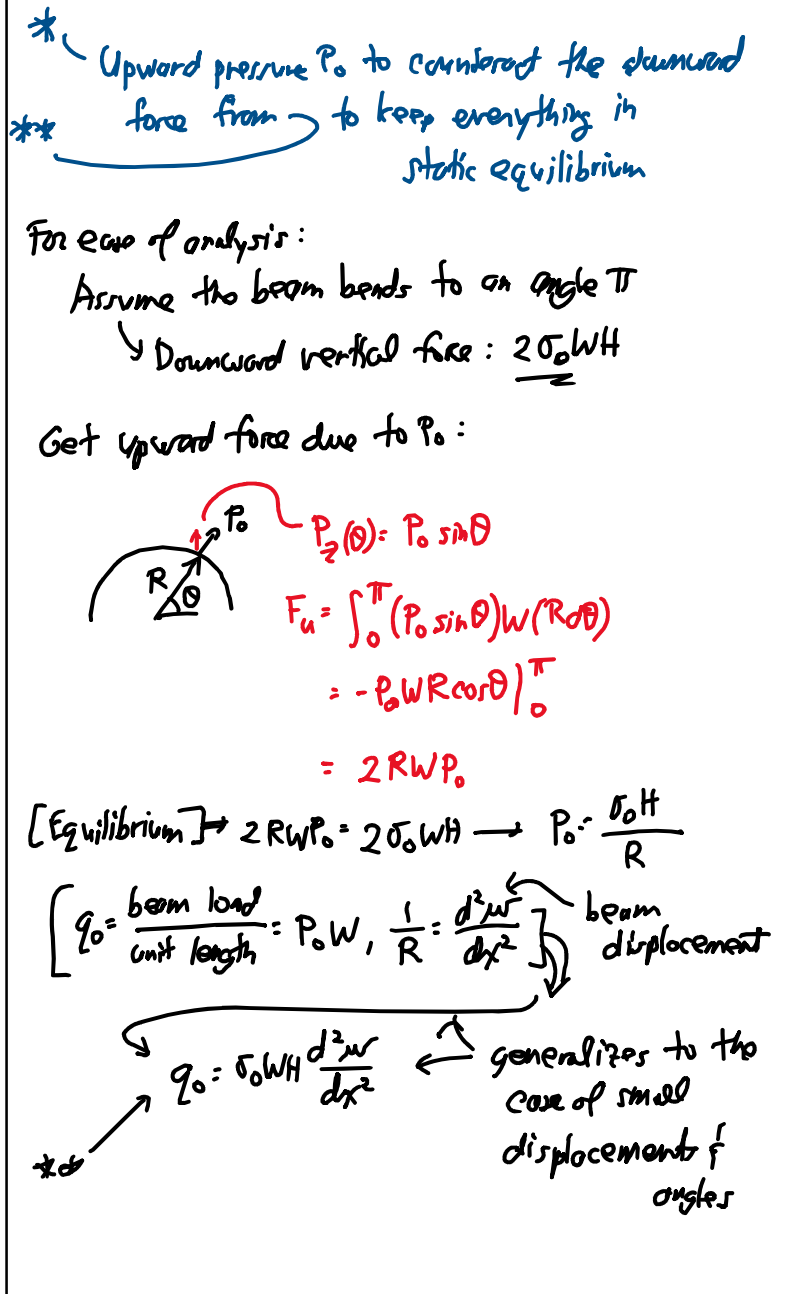 *
Upward pressure P₀ to counteract the downward
** force from to keep everything in
static equilibrium
For ease of analysis:
Assume the beam bends to an angle π
Downward vertical force: 2σ₀WH
Get upward force due to P₀:
P₀
R θ
P_z(θ) = P₀ sinθ
F_u = ∫₀^π (P₀ sinθ)W(Rdθ)
= -P₀WRcosθ|₀^π
= 2RWP₀
[Equilibrium] → 2RWP₀ = 2σ₀WH → P₀ = σ₀H/R
[q₀ = beam load/unit length = P₀W, 1/R = d²w/dx²]
beam
displacement
q₀ = σ₀WH d²w/dx²
generalizes to the
case of small
displacement &
angles
**